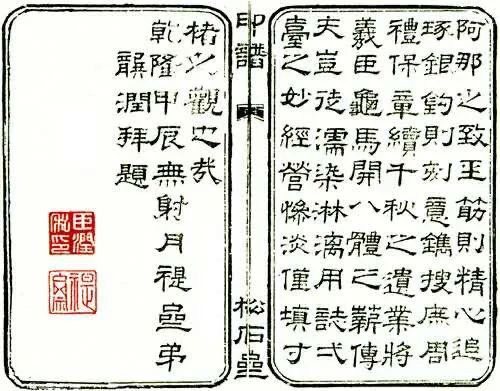 阿那之致玉筋則精心追
琢銀鈎則刻意鐫搜庶周
禮保章續千秋之遺業將
羲臣龜馬開八體之薪傳
夫豈徒濡染淋漓用誌弌
臺之妙經營慘淡僅填寸
印譜
松石
楮之觀也哉
乾隆甲辰無射月禔弟
潤拜題